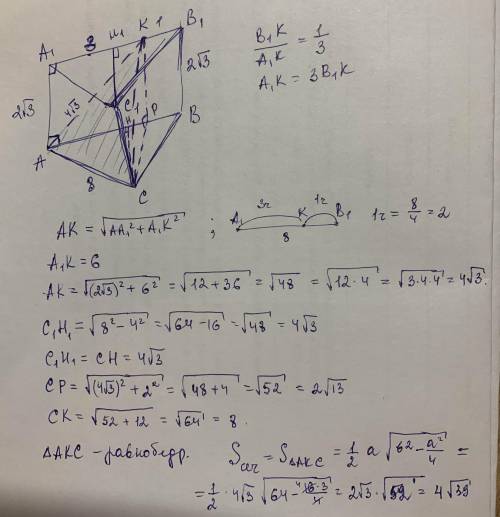 A₁ 3 H₁ K 1 B₁
B₁K/A₁K = 1/3
A₁K = 3B₁K
2√3 4√3 C₁ 2√3
H P B
A
8
C
AK = √(AA₁² + A₁K²) ; A₁ 3r K 1r B₁ 8 1r = 8/4 = 2
A₁K = 6
AK = √((2√3)² + 6²) = √(12 + 36) = √48 = √(12·4) = √(3·4·4) = 4√3.
C₁H₁ = √(8² – 4²) = √(64 – 16) = √48 = 4√3
C₁H₁ = CH = 4√3
CP = √((4√3)² + 2²) = √(48 + 4) = √52 = 2√13
CK = √(52 + 12) = √64 = 8.
ΔAKC – равнобедр. Sсеч = SΔAKC = 1/2 a √(b² – a²/4) =
= 1/2 · 4√3 √(64 – 16·3/4) = 2√3 · √52 = 4√39